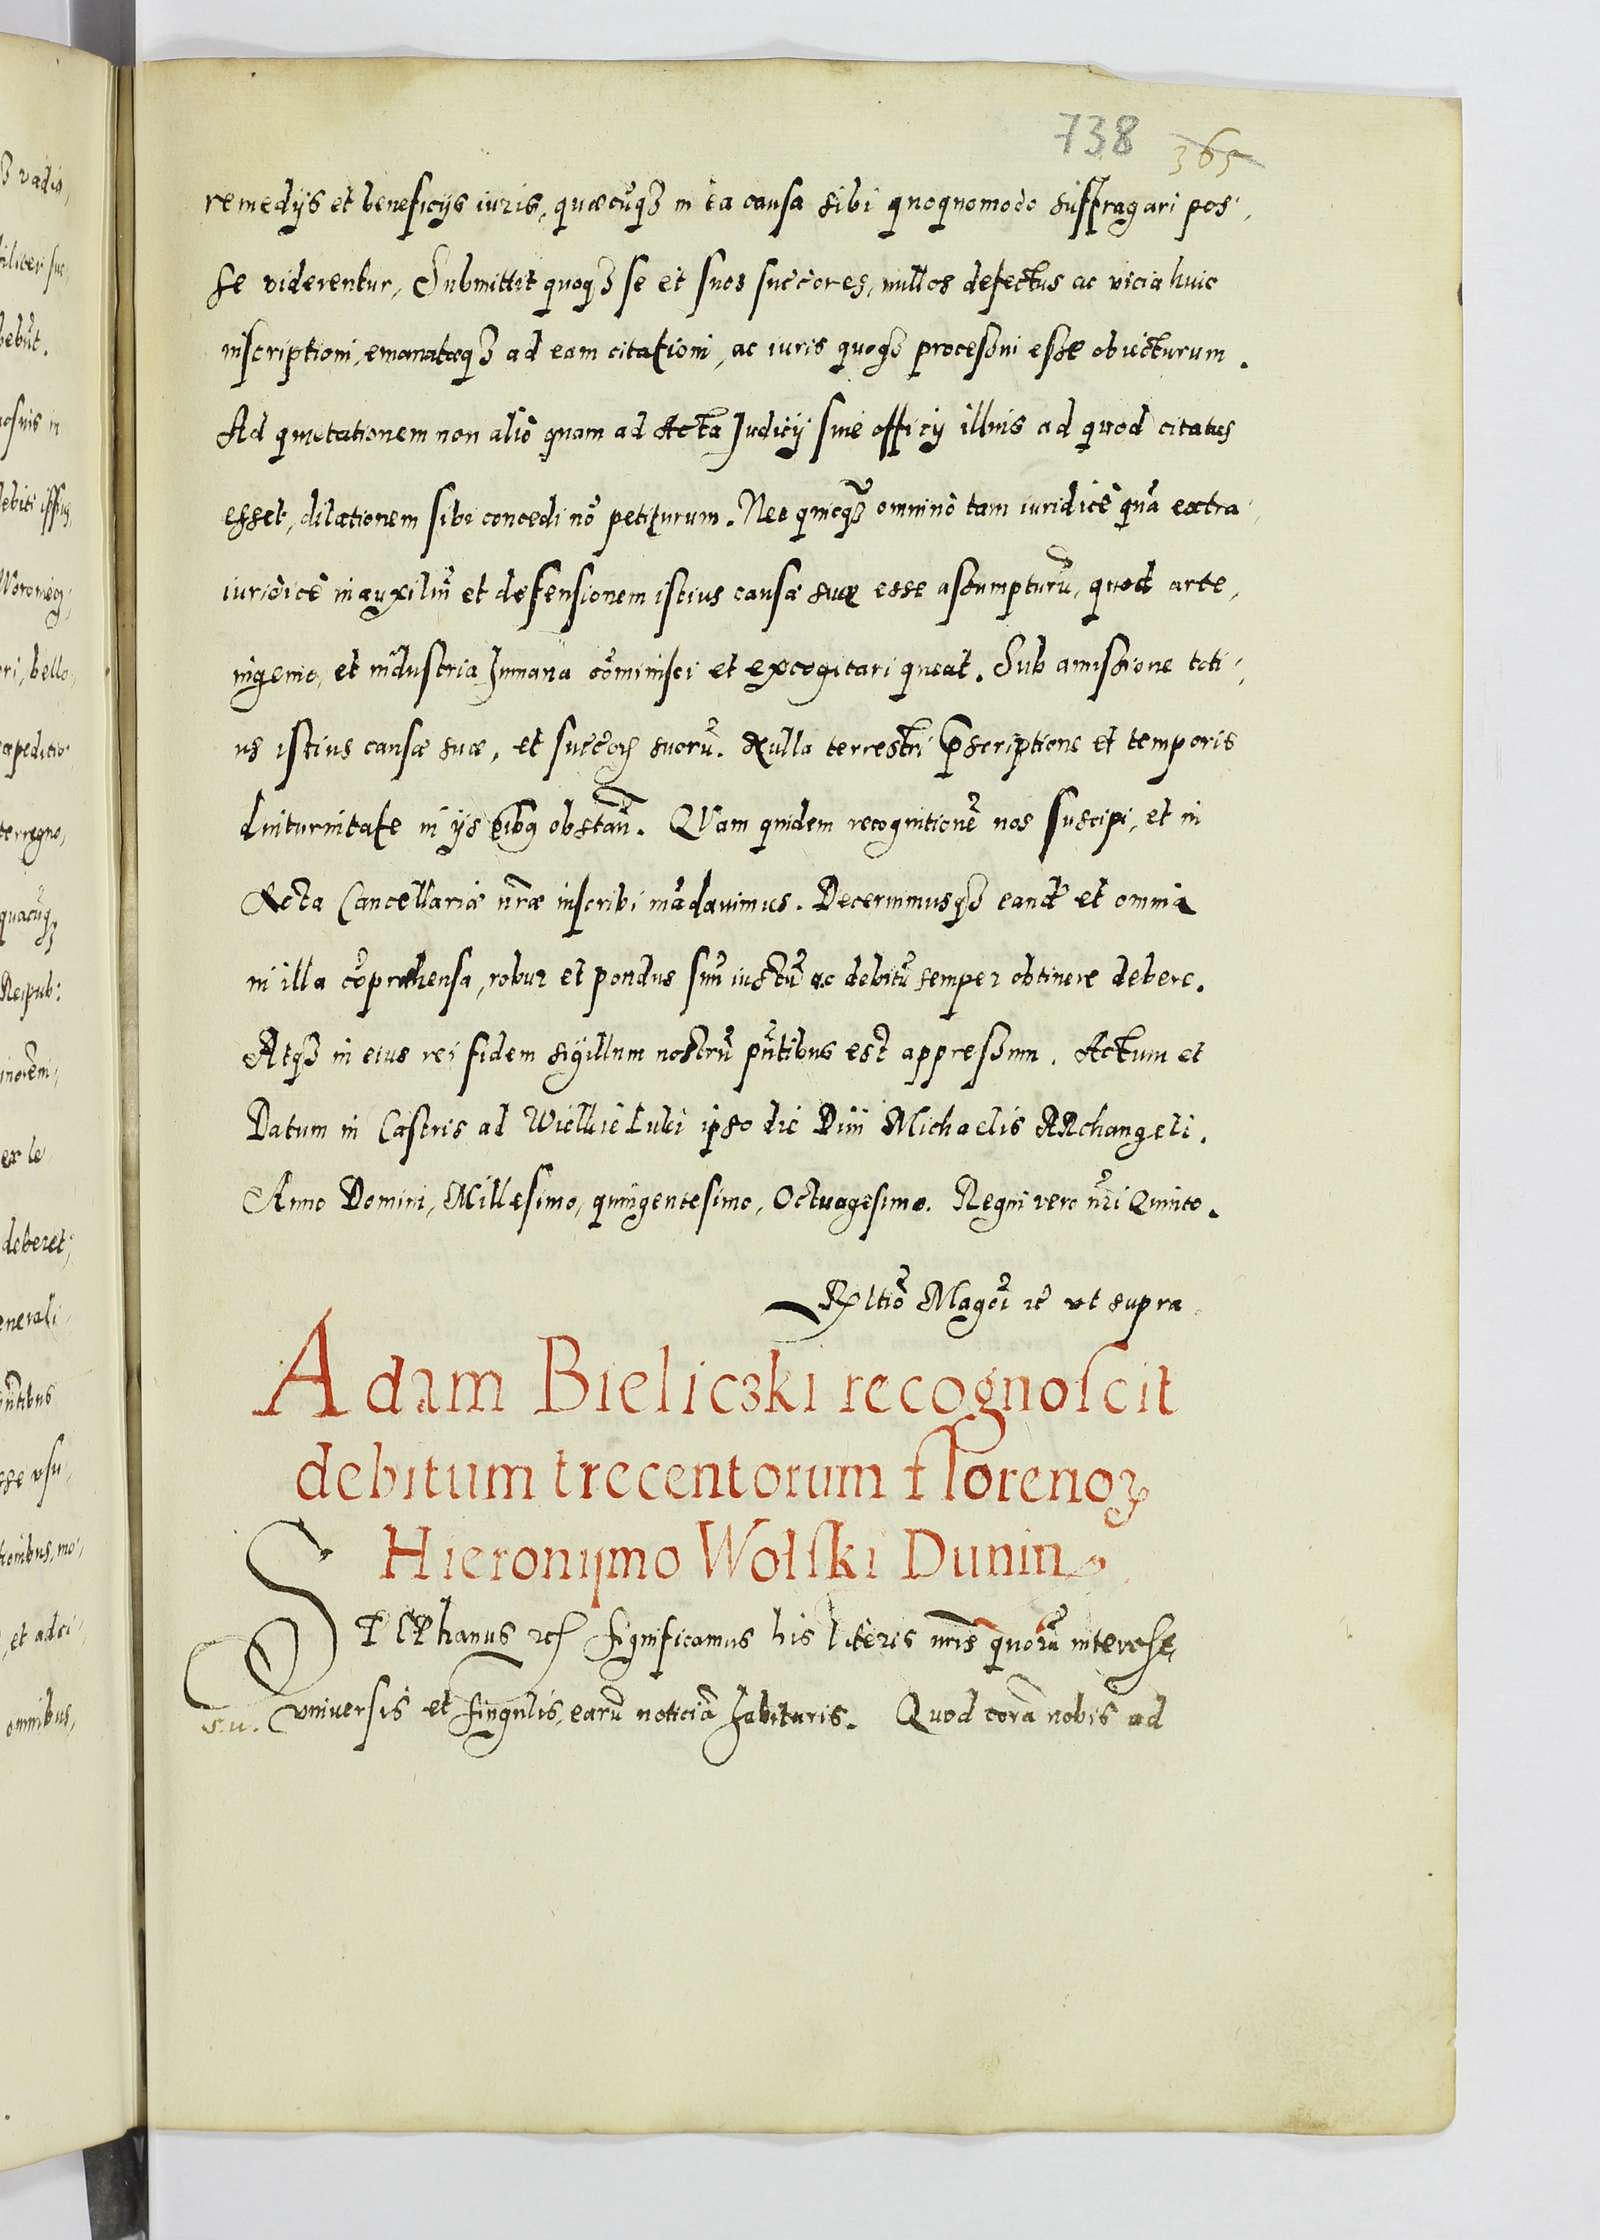 738 365
remedijs et beneficijs iuris, quæcũqꝫ in ea causa sibi quoquomodo suffragari pos-
se viderentur, Submittit quoqꝫ se et suos succ̃ores, nullos defectus ac vicia huic
inscriptioni, emanatæqꝫ ad eam citationi, ac iuris quoqꝫ processui esse obiecturum.
Ad quietationem non aliò quam ad Acta Judicij siue officij illius ad quod citatus
esset, dilationem sibi concedi nõ petiturum. Nec quicqꝫ̃ omninò tam iuridicè quã extra
iuridicè in auxiliũ et defensionem istius causæ suæ esse assumpturũ, quod arte,
ingenio, et industria humana cõminisci et excogitari queat. Sub amissione toti-
us istius causæ suæ, et succ̃oꝝ suorũ. Nulla terrestri ꝑscriptione et temporis
diuturnitate in ijs õibꝫ obstañ. QVam quidem recognitionẽ nos suscipi, et in
Acta Cancellariæ nr̃æ inscribi mãdauimus. Decernimusqꝫ eand̃ et omnia
in illa cõprehensa, robur et pondus suũ iustũ ac debitũ semper obtinere debere.
Atqꝫ in eius rei fidem sigillum nostrũ pñtibus est appressum. Actum et
Datum in Castris ad Wielkie Łuki ipso die Diui Michaelis ARchangeli.
Anno Domini, Millesimo, quingentesimo, Octuagesimo. Regni vero nr̃i Quinto.
Rɫtiõ Magc̃i ꝛc̃ vt supra
Adam Bieliczki recognoscit
debitum trecentorum florenoꝝ
Hieronijmo Wolski Dunin
STEPhanus ꝛcꝭ Significamus his literis nr̃is quorũ interesse,
s.u. vniuersis et singulis, earũ noticiã habituris. Quod corã nobis ad